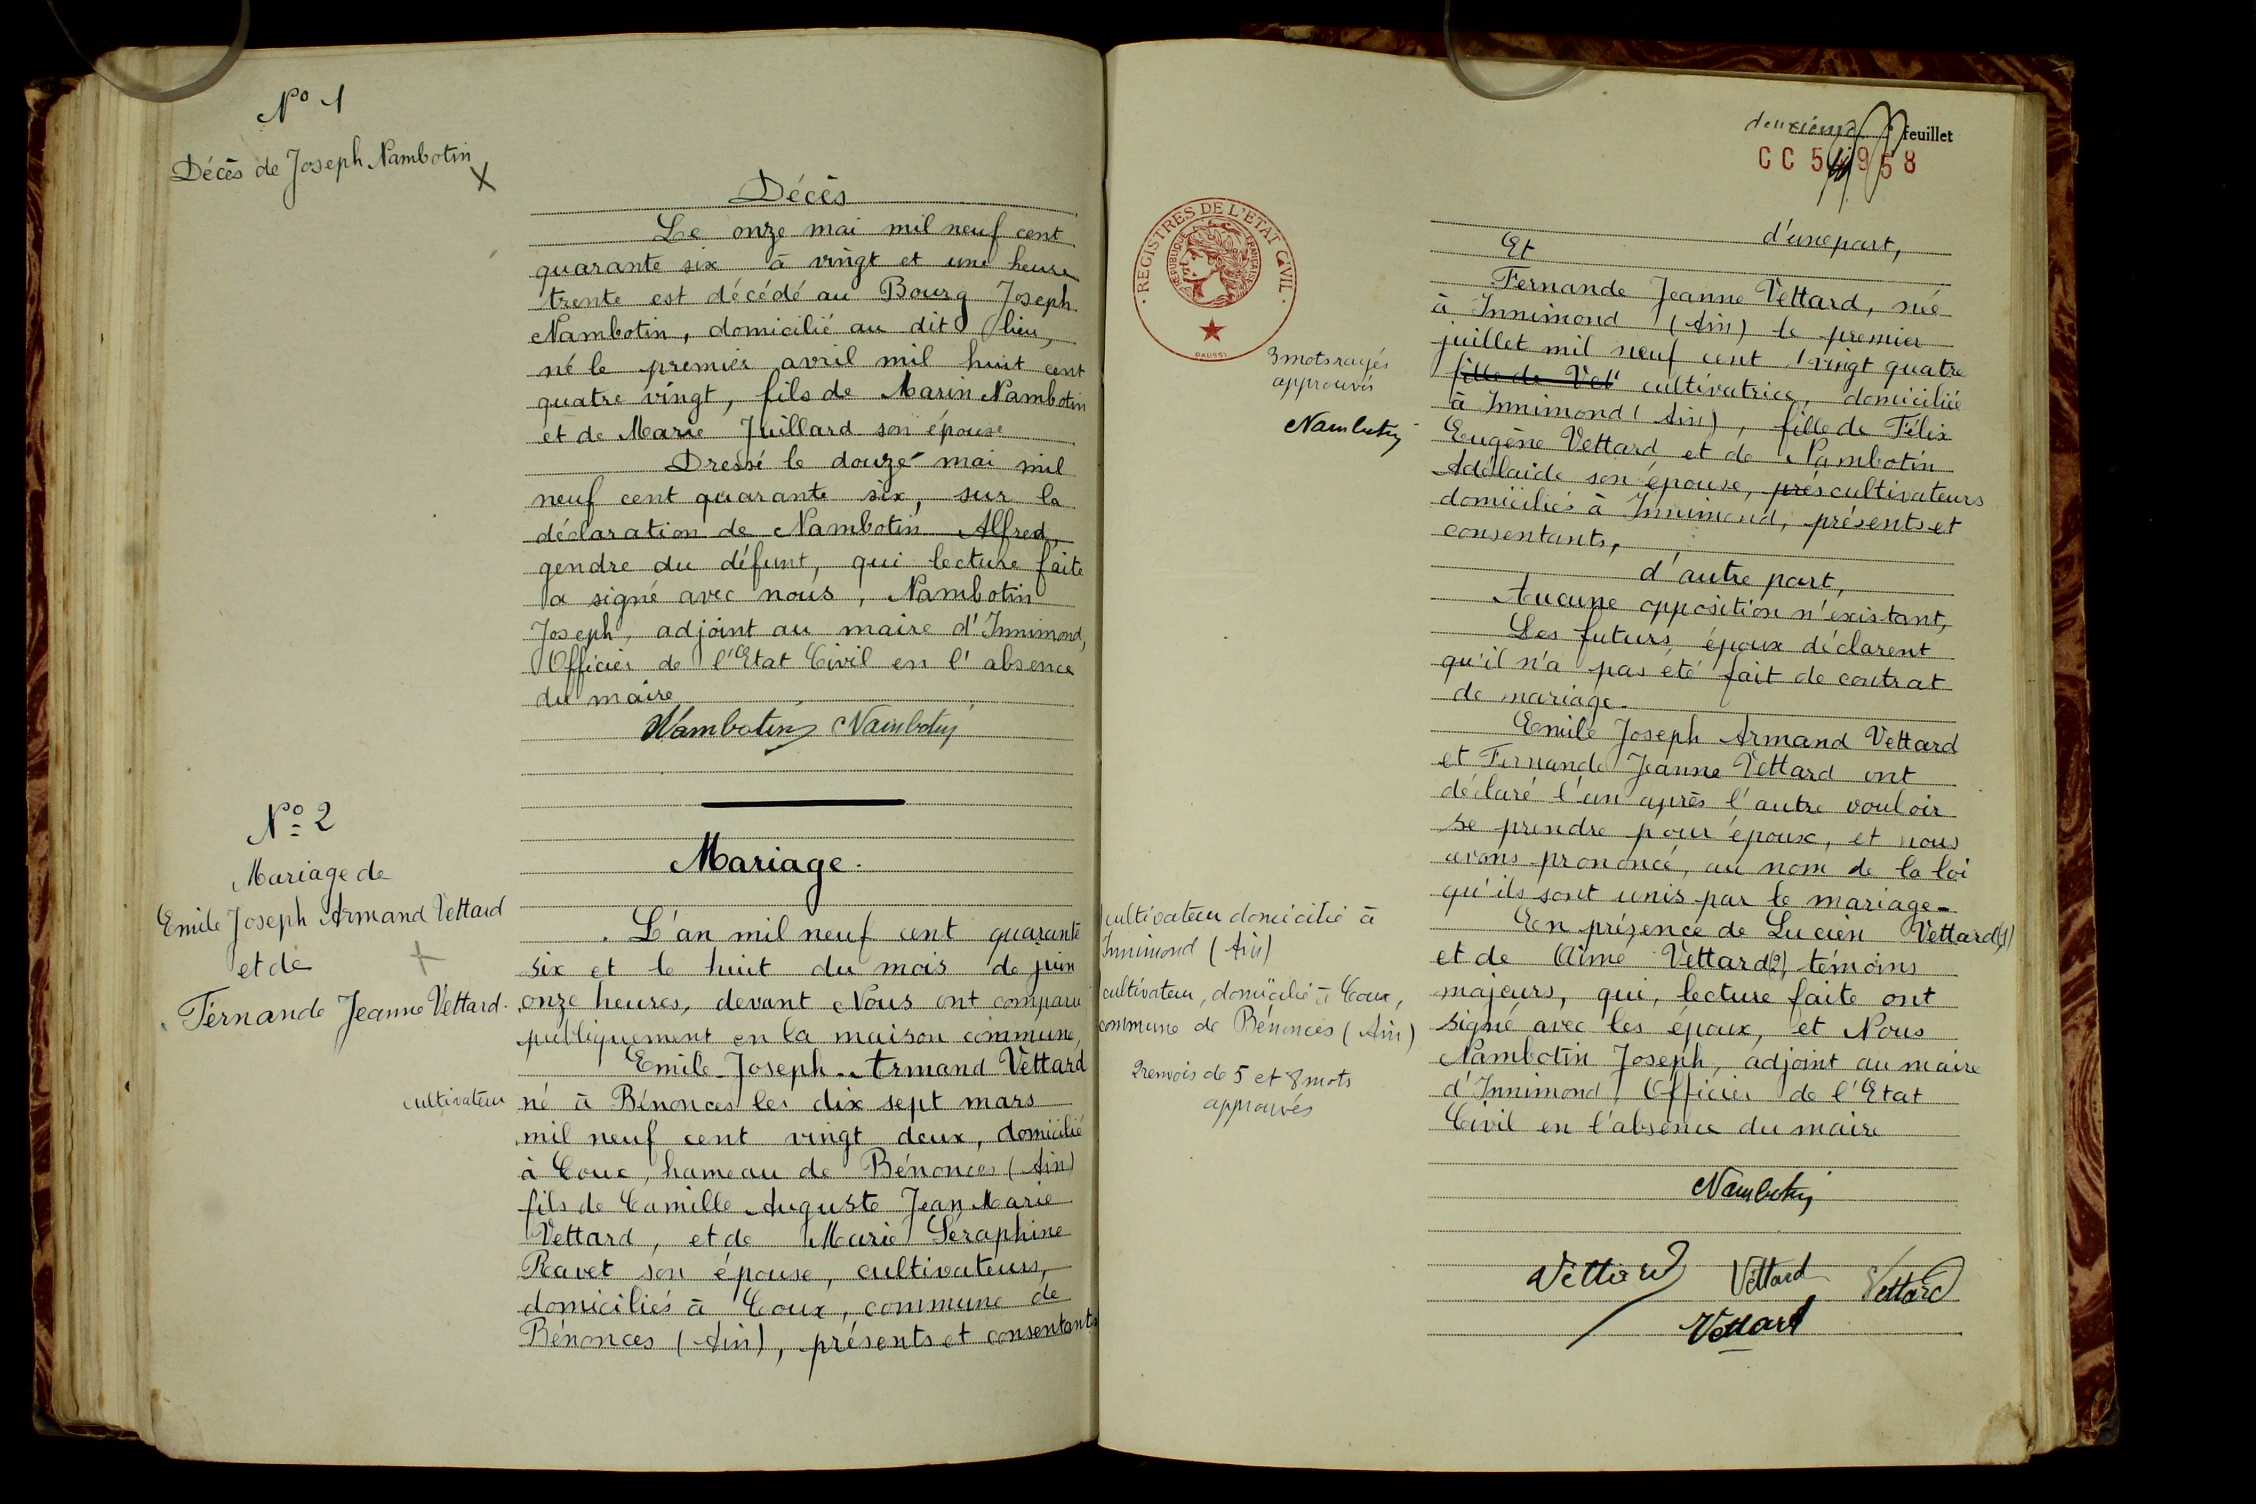 N° 1
Décès de Joseph Nambotin
Décès
Le onze mai mil neuf cent
quarante six à vingt et une heure
trente est décédé au Bourg Joseph
Nambotin, domicilié au dit lieu,
né le premier avril mil huit cent
quatre vingt, fils de Marin Nambotin
et de Marie Juillard son épouse
Dressé le douze mai mil
neuf cent quarante six, sur la
déclaration de Nambotin Alfred,
gendre du défunt, qui lecture faite
a signé avec nous, Nambotin
Joseph, adjoint au maire d'Innimond,
Officier de l'Etat Civil en l'absence
du maire
Nambotin Nambotin
N° 2
Mariage de
Emile Joseph Armand Vettard
et de
Fernande Jeanne Vettard.
Mariage.
L'an mil neuf cent quarante
six et le huit du mois de juin
onze heures, devant Nous ont comparu
publiquement en la maison commune,
Emile Joseph Armand Vettard
cultivateur
né à Bénonces les dix sept mars
mil neuf cent vingt deux, domicilié
à Coux, hameau de Bénonces (Ain)
fils de Camille Auguste Jean Marie
Vettard, et de Marie Séraphine
Ravet son épouse, cultivateurs,
domiciliés à Coux, commune de
Bénonces (Ain), présents et consentants
deuxième feuillet
CC 5 958
REGISTRES DE L'ETAT CIVIL
REPUBLIQUE FRANCAISE
DAUSSI
d'une part,
Et
Fernande Jeanne Vettard, née
à Innimond (Ain) le premier
juillet mil neuf cent vingt quatre
fille de Vet cultivatrice, domiciliée
à Innimond (Ain), fille de Félix
Eugène Vettard et de Nambotin
Adélaïde son épouse, prés cultivateurs
domiciliés à Innimond, présents et
consentants,
d'autre part,
Aucune opposition n'existant,
Les futurs époux déclarent
qu'il n'a pas été fait de contrat
de mariage.
Emile Joseph Armand Vettard
et Fernande Jeanne Vettard ont
déclaré l'un après l'autre vouloir
se prendre pour époux, et nous
avons prononcé, au nom de la loi
qu'ils sont unis par le mariage.
En présence de Lucien Vettard (1)
et de Aimé Vettard (2) témoins
majeurs, qui, lecture faite ont
signé avec les époux, et Nous
Nambotin Joseph, adjoint au maire
d'Innimond, Officier de l'Etat
Civil en l'absence du maire
3 mots rayés
approuvés
Nambotin
cultivateur domicilié à
Innimond (Ain)
cultivateur, domicilié à Coux,
commune de Bénonces (Ain)
2 renvois de 5 et 8 mots
approuvés
Nambotin
Vettard Vettard Vettard
Vettard